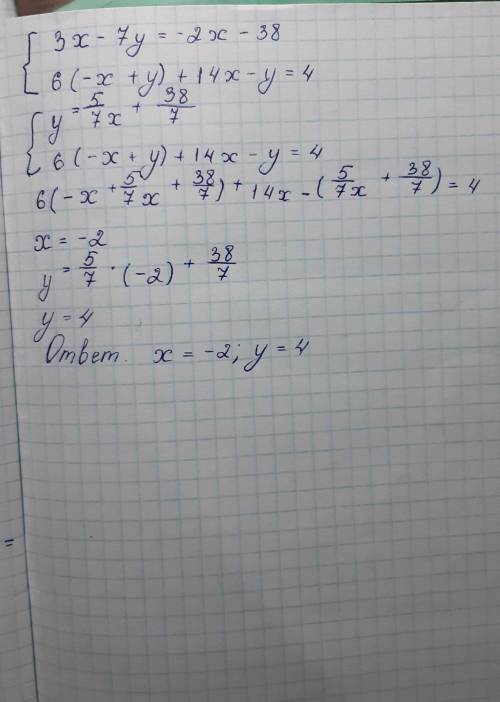 { 3x - 7y = -2x - 38
6(-x + y) + 14x - y = 4
{ y = 5/7x + 38/7
6(-x + y) + 14x - y = 4
6(-x + 5/7x + 38/7) + 14x - (5/7x + 38/7) = 4
x = -2
y = 5/7 · (-2) + 38/7
y = 4
Ответ. x = -2; y = 4
=